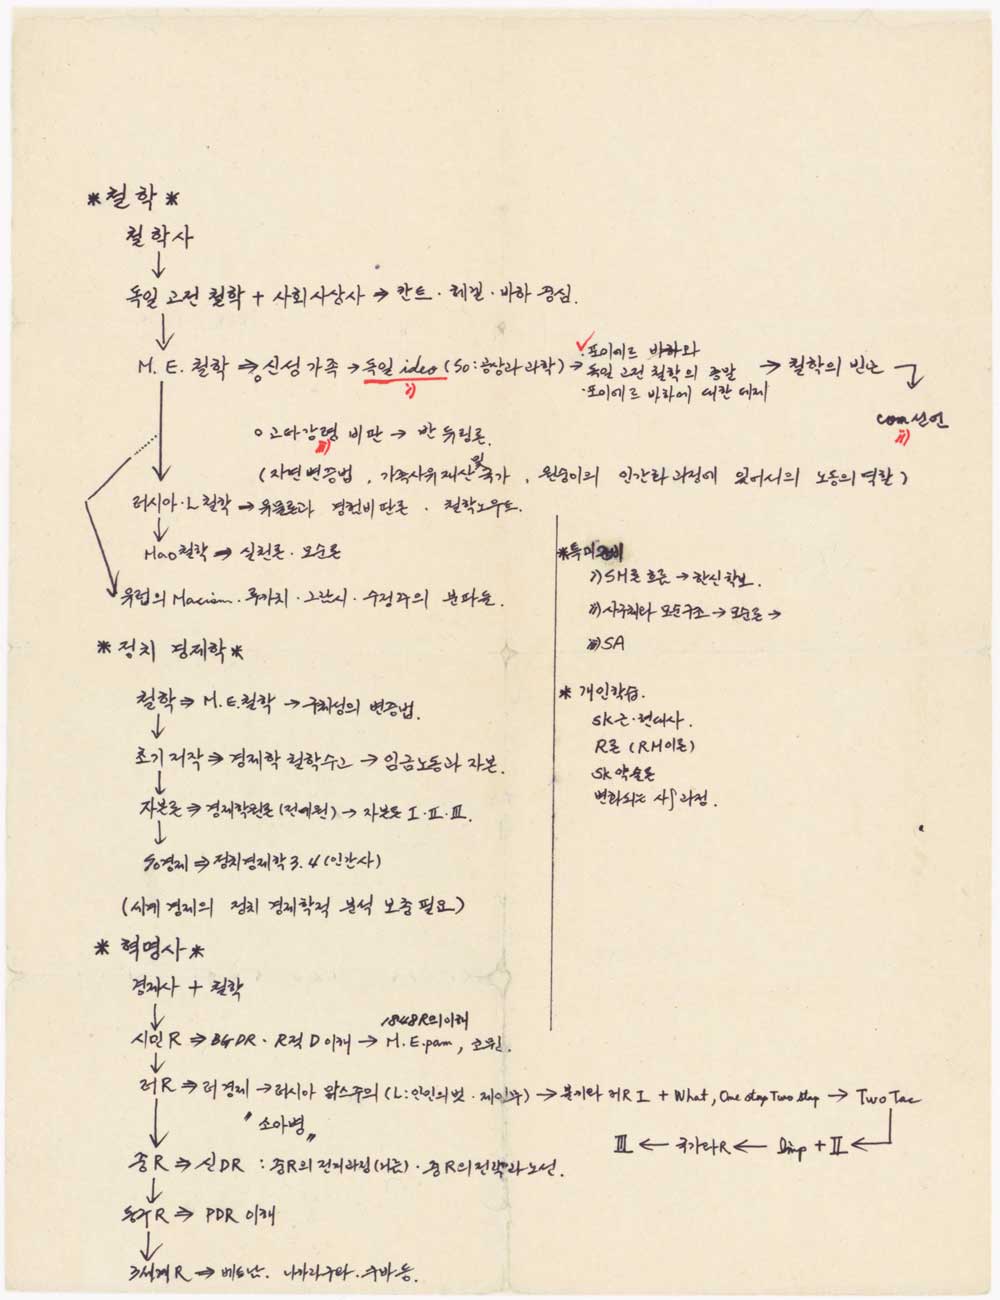 * 철학 *
철학사
↓
독일 고전 철학 + 사회사상사 → 칸트 · 헤겔 · 바하 중심.
↓
M. E. 철학 ⇒ 신성가족 → 독일 ideo (So : 공상과 과학) →
· 포이에르 바하와
독일 고전 철학의 종말
· 포이에르 바하에 대한 테제
→ 철학의 빈곤
com선언
ii)
i)
○ 고타강령 비판 → 반 듀링론.
iii)
(자연변증법, 가족사유재산및국가, 원숭이의 인간화과정에 있어서의 노동의역할)
러시아·L철학 → 유물론과 경험비판론 · 철학노우트.
↓
Mao철학 → 실천론 · 모순론
유럽의 · 루가치 · 그람시 · 수정주의 분파들.
* 정치 경제학 *
철학 ⇒ M.E.철학 → 구체성의 변증법.
↓
초기저작 ⇒ 경제학 철학수고 → 임금노동과 자본.
↓
자본론 ⇒ 경제학원론 (전예원) → 자본론 I·II·III.
↓
So경제 ⇒ 정치경제학 3.4 (인간사)
(세계 경제의 정치 경제학적 분석 보충 필요)
i) SM론 흐름 → 한신학보.
ii) 사구체와 모순구조 → 모순론 →
iii) SA
* 개인학습.
SK근·현대사.
R론 (RM이론)
SK약술론
변화되는 과정.
* 혁명사 *
경제사 + 철학
↓
1848R의이해
시민R ⇒ BGDR · R적 D이해 → M.E.pam,
↓
러R ⇒ 러경제 → 러시아 맑스주의 (L:인민의벗 ·) → 러R I + What, One step Two step → Two Tac
"소아병"
III ← 국가와R ← Imp + II ←
중R ⇒ 신DR : 중R의 전개과정 · 중R의전략과노선.
↓
동구R ⇒ PDR 이해
↓
3세계R ⇒ 베트남. 니카라구아. 쿠바 등.